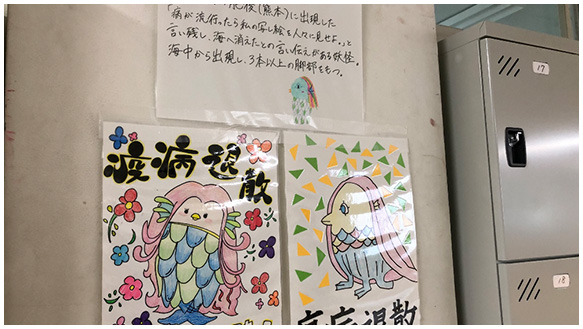 肥後(熊本)に出現した
「病が流行ったら私の写し絵を人々に見せよ。」と
言い残し、海へ消えたとの言い伝えがある妖怪。
海中から出現し、3本以上の脚部をもつ。
疫病退
散
疫病退散
17
18